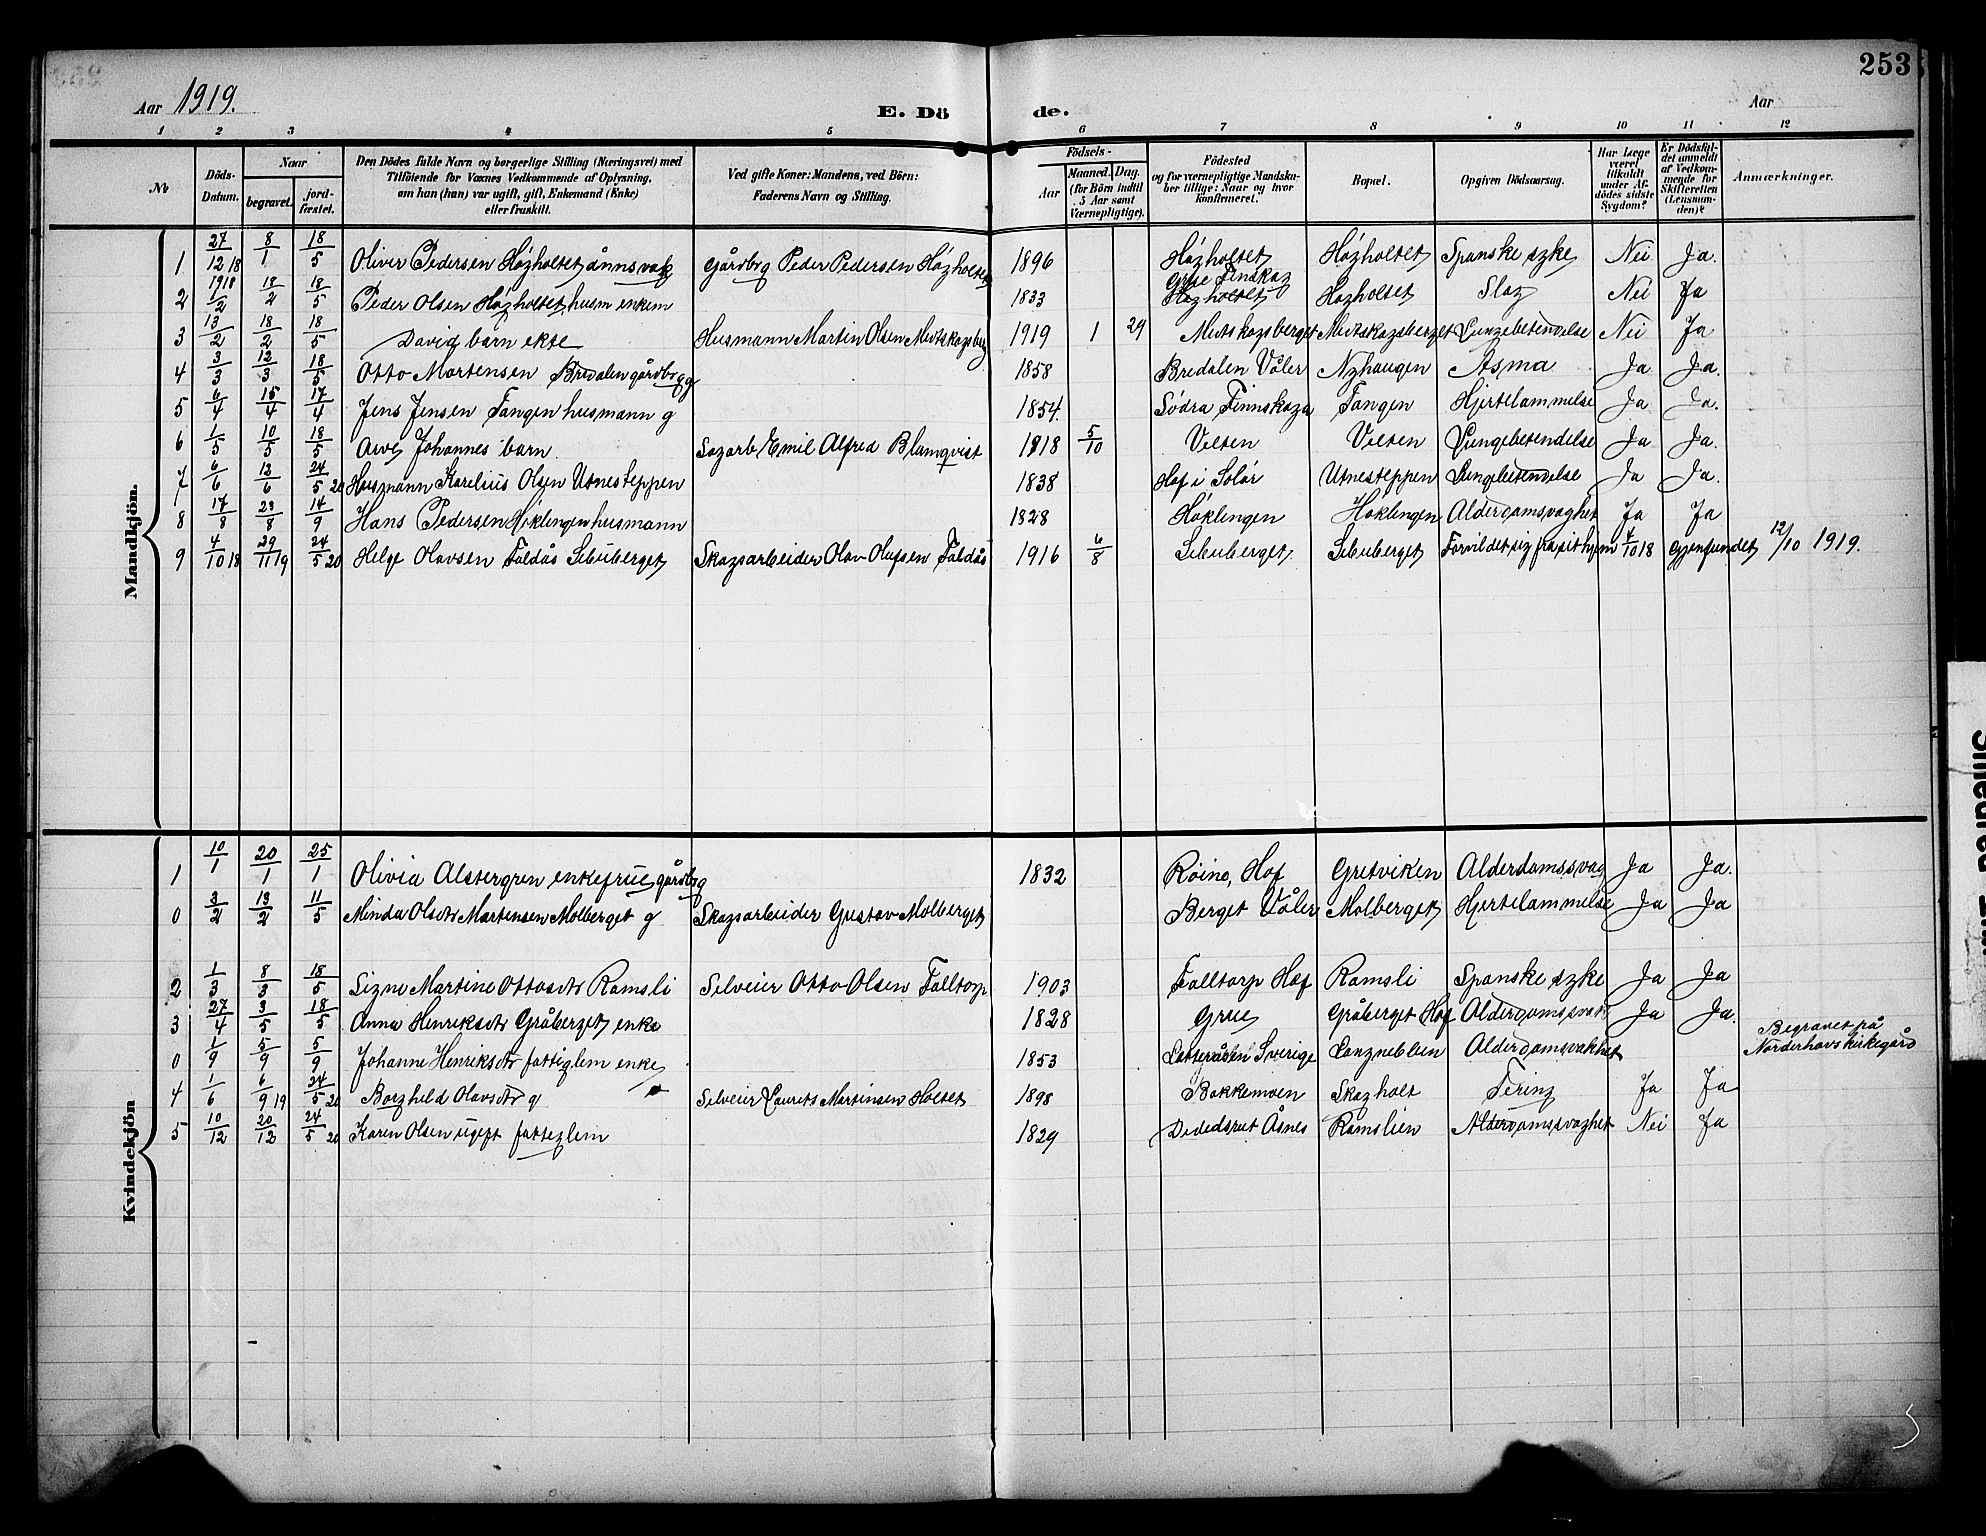 253
Aar 1919.
E. Dö de.
Aar
1 2 3 4 5 6 7 8 9 10 11 12
No
Döds-Datum.
Naar
begravet.
jord-fæstet.
Den Dödes fulde Navn og borgerlige Stilling (Næringsvei) med
Tilföiende for Voxnes Vedkommende af Oplysning,
om han (hun) var ugift, gift, Enkemand (Enke)
eller fraskilt.
Ved gifte Koner: Mandens, ved Börn:
Faderens Navn og Stilling.
Födsels-
Aar
Maaned. Dag.
(for Börn indtil
5 Aar samt
Værnepligtige).
Födested
og for værnepligtige Mandska-
ber tillige: Naar og hvor
konfirmeret.
Bopæl.
Opgiven Dödsaarsag.
Har Læge
været
tilkaldt
under Af-
dödes sidste
Sygdom?
Er Dödsfal-
det anmeldt
af Vedkom-
mende for
Skifteretten
(Lensman-
den)?
Anmærkninger.
Mandkjön.
1 27/12 18 8/1 18/5 Oliver Pedersen Högholtet Gårdbrg Peder Pedersen Högholtet 1896 Högholtet Högholtet Spanske syke Nei Ja.
2 1918 1/2 18/2 18/5 Peder Olsen Högholtet husm enkem 1833 Grue Finskog Högholtet Högholtet Slag Nei Ja
3 13/2 18/2 18/5 David barn ekte Husmann Martin Olsen Medskogsberg 1919 1 29 Medskogsberget Medskogsberget Lungebetendelse Nei Ja
4 3/3 12/3 18/5 Otto Mortensen Bredalen gårdbr g 1858 Bredalen Våler Nyhaugen Asma Ja Ja.
5 6/4 15/4 17/4 Jens Jensen Tangen husmann g 1854. Södra Finnskoga Tangen Hjertelammelse Ja Ja.
6 1/5 10/5 18/5 Arve Johannes barn Sagarb Emil Alfred Blumqvist 1918 5/10 Velten Velten Lungebetendelse Ja Ja.
7 6/6 12/6 24/5 20 Husmann Karelius Olsen Utnesteppen 1838 Hof i Solör Utnesteppen Lungebetendelse Ja Ja.
8 17/8 23/8 14/9 Hans Pedersen Höklingen husmann 1828 Höklingen Höklingen Alderdomsvaghet Ja Ja
9 4/10 18 29/11 19 24/5 20 Helge Olavsen Faldås Sibuberget Skogsarbeider Olav Olufsen Faldås 1916 6/8 Sibuberget Sibuberget Forvildet sig fra sit hjem 4/10 18 gjenfundet 12/10 1919.
Kvindekjön
1 10/1 20/1 25/1 Olivia Alstergren enkefrue gårdbr g 1832 Röine, Hof Gretviken Alderdomssvag Ja Ja.
0 3/2 13/2 11/5 Minda Olsdtr Martensen Molberget g Skogsarbeider Gustav Molberget 1892 Berget Våler Molberget Hjertelammelse Ja Ja
2 1/3 8/3 18/5 Signe Martine Ottosdtr Ramsli Selveier Otto Olsen Falltorp 1903 Falltorp Hof Ramsli Spanske syke Ja Ja
3 27/4 3/5 18/5 Anna Henriksdtr Gråberget enke 1828 Grue Gråberget Hof Alderdomssvak Ja Ja.
0 1/9 5/9 5/9 Johanne Henriksdtr fattiglem enke 1853 Sverige Alderdomsvakhet Begravet på
Norderhovs kirkegård
4 1/6 6/9 19 24/5 20 Borghild Olavsdtr g Selveier Laurits Martinsen Holtet 1898 Bakkemoen Skogholt Tering Ja Ja
5 10/12 20/12 24/5 20 Karen Olsen ugift fattiglem 1829 Åsnes Ramslien Alderdomssvaghet Nei Ja